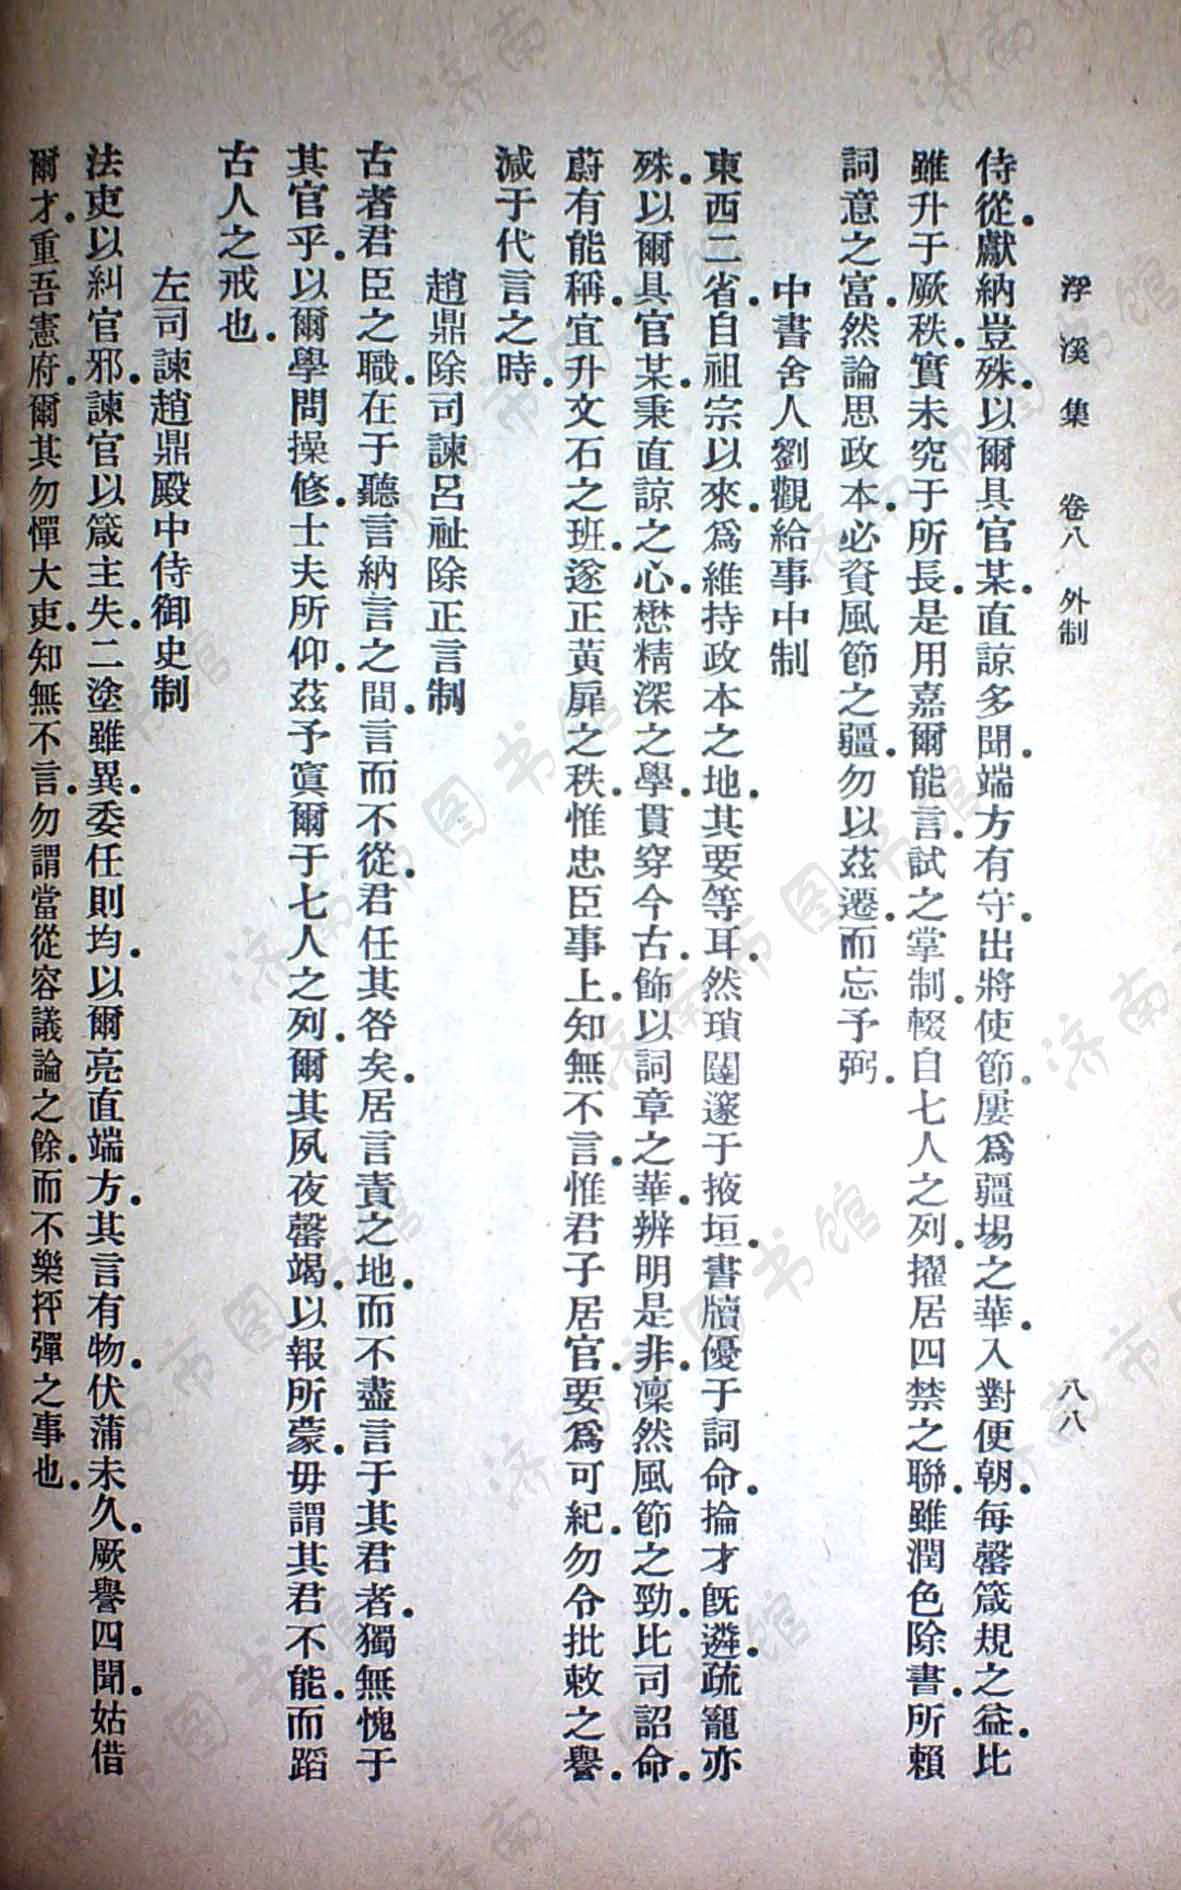 浮溪集 卷八 外制 八八
侍從.獻納豈殊.以爾具官某.直諒多聞.端方有守.出將使節.屢爲疆場之華.入對便朝.每罄箴規之益.比
雖升于厥秩.實未究于所長.是用嘉爾能言.試之掌制.輟自七人之列.擢居四禁之聯.雖潤色除書.所賴
詞意之富.然論思政本.必資風節之疆.勿以茲遷.而忘予弼.
中書舍人劉觀給事中制
東西二省.自祖宗以來.爲維持政本之地.其要等耳.然瑣闥邃于掖垣.書牘優于詞命.掄才旣遴.疏寵亦
殊.以爾具官某.秉直諒之心.懋精深之學.貫穿今古.飾以詞章之華.辨明是非.凜然風節之勁.比司詔命.
蔚有能稱.宜升文石之班.遂正黃扉之秩.惟忠臣事上.知無不言.惟君子居官.要爲可紀.勿令批敕之譽.
減于代言之時.
趙鼎除司諫呂祉除正言制
古者君臣之職.在于聽言納言之間.言而不從.君任其咎矣.居言責之地.而不盡言于其君者.獨無愧于
其官乎.以爾學問操修.士夫所仰.茲予寘爾于七人之列.爾其夙夜罄竭.以報所蒙.毋謂其君不能.而蹈
古人之戒也.
左司諫趙鼎殿中侍御史制
法吏以糾官邪.諫官以箴主失.二塗雖異.委任則均.以爾亮直端方.其言有物.伏蒲未久.厥譽四聞.姑借
爾才.重吾憲府.爾其勿憚大吏.知無不言.勿謂當從容議論之餘.而不樂抨彈之事也.
济南市图书馆